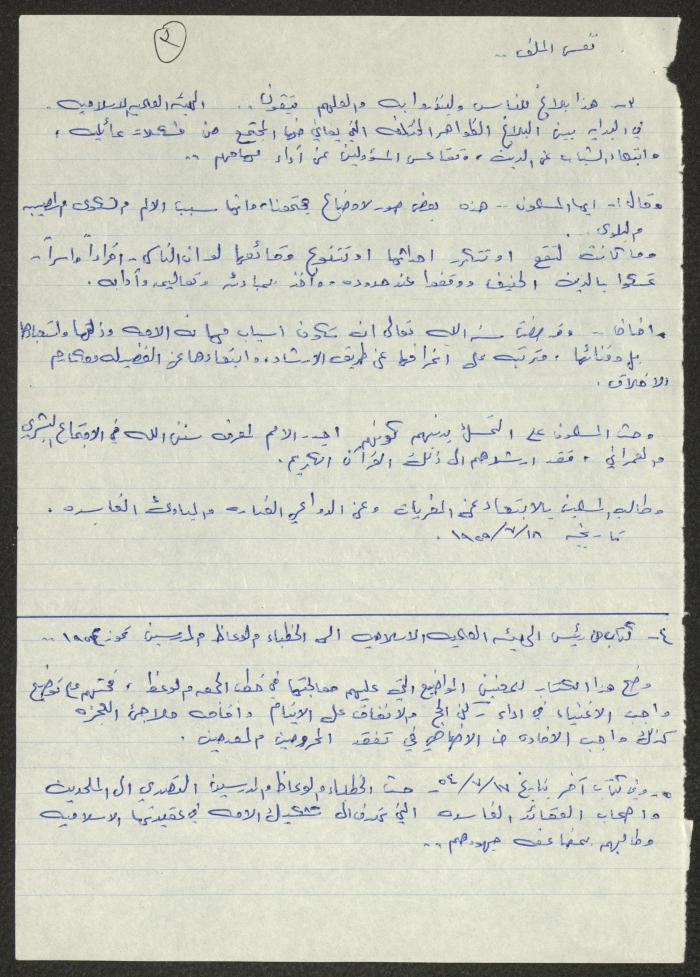 ٢
نفس الملف ..
٣- هذا بلاغ للناس ولينذروا به ولعلهم يتقون .. الهيئة العلمية الاسلامية .
في البداية بين البلاغ الظواهر المختلفة التي يعاني منها المجتمع من مشكلات عائلية ،
وابتعاد الشباب عن الدين ، وتقاعس المسؤولين عن أداء مهامهم ..
وقال :- ايها المسلمون -- هذه بعض صور لاوضاع مجتمعنا، وانها سبب الالم والشكوى والمصيبه
والبلوى . .
وما كانت لتقع او تتكرر احداثها او تتنوع وقائعها لو ان الناس - افراداً واسراً -
تمسكوا بالدين الحنيف ووقفوا عند حدوده . وأخذ بمبادئه وتعاليمه وآدابه .
واضاف -- وقد مضت سنة الله تعالى ان تكون اسباب مهانة الامه وذلتها واستعبادها
بل وفنائها . مترتبه على انحرافها عن طريق الارشاد ، وابتعادها عن الفضيله ومكارم
الاخلاق .
وحث المسلمون على التمسك بدينهم كونهم اجدر الامم لمعرفة سنن الله في الاجتماع البشري
والعمراني ، فقد ارشدهم الى ذلك القرآن الكريم .
وطالب المسلمين بالابتعاد عن المغريات وعن الدواعي الضاره والمبادئ الفاسده .
تاريخه ١٨/٧/١٩٥٩ .
٤- كتاب من رئيس الهيئه العلميه الاسلاميه الى الخطباء والوعاظ والمدرسين تموز ١٩٥٤ ..
وضح هذا الكتاب للمعنيين المواضيع التي عليهم معالجتها في خطب الجمعه والوعظ ، فحثهم على توضيح
واجب الاغنياء في اداء الحج والانفاق على الايتام واقامة ملاجئ العجزه
كذلك واجب الافاده من الاضاحي في تفقد المحرومين والمعدمين .
* وفي كتاب آخر بتاريخ ١٧/٧/٥٤ - حث الخطباء والوعاظ والمدرسين التصدي الى الملحدين
واصحاب العقائد الفاسده التي تهدف الى تشكيك الامه في عقيدتها الاسلاميه
وطالبهم بمضاعفة جهودهم ..